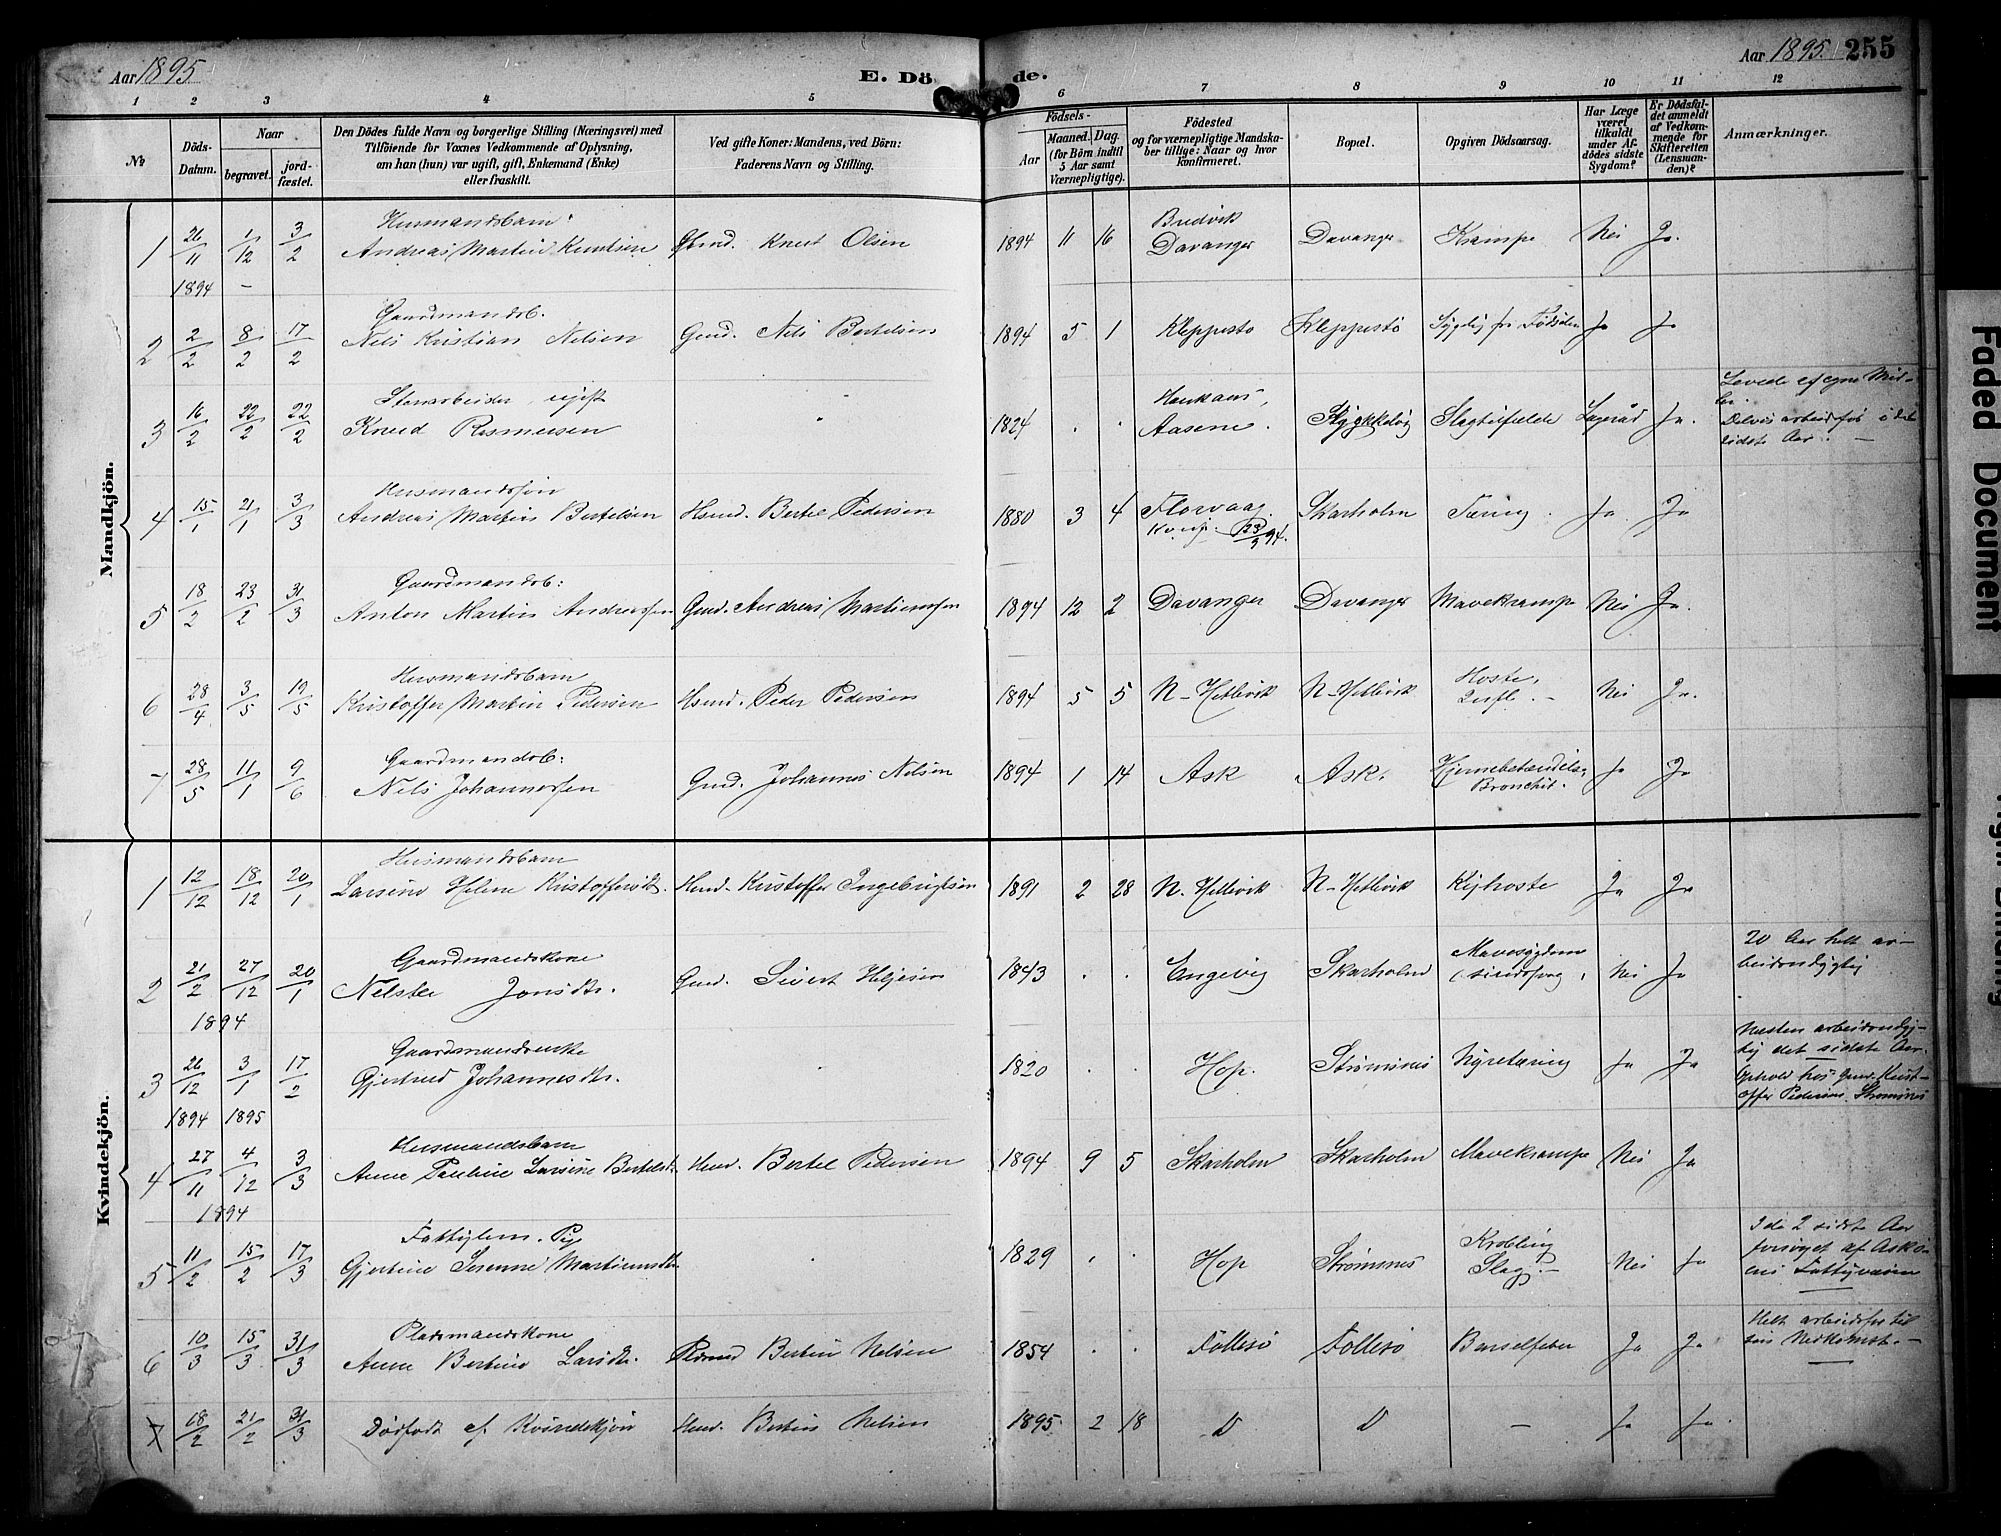 Aar 1895
E. Dö
de.
Aar 1895. 255
1 2 3 4 5 6 7 8 9 10 11 12
No
Döds-Datum.
Naar
begravet.
jordfæstet.
Den Dödes fulde Navn og borgerlige Stilling (Næringsvei) med
Tilföiende for Voxnes Vedkommende af Oplysning,
om han (hun) var ugift, gift, Enkemand (Enke)
eller fraskilt.
Ved gifte Koner: Mandens, ved Börn:
Faderens Navn og Stilling.
Födsels-
Aar
Maaned. Dag.
(for Börn indtil
5 Aar samt
Værnepligtige).
Födested
og for værnepligtige Mandska-
ber tillige: Naar og hvor
konfirmeret.
Bopæl.
Opgiven Dödsaarsag.
Har Læge
været
tilkaldt
under Af-
dödes sidste
Sygdom?
Er Dödsfal-
det anmeldt
af Vedkom-
mende for
Skifteretten
(Lensman-
den)?
Anmærkninger.
Mandkjön.
Husmandsbarn
Bredvik
1 26/11 1/12 3/2 Andreas Martin Knutsen Knut Olsen 1894 11 16 Davanger Davanger Krampe Nei Ja.
1894 –
Gaardmandsb.
2 2/2 8/2 17/2 Nils Kristian Nilsen Gmd. Nils Bertelsen 1894 5 1 Kleppestø Kleppestø Sygelig fra Fødselen Ja Ja
Stenarbeider, ugift
Haukaas,
Levede af egne Mid-
ler.
3 16/2 22/2 22/2 Knud Rasmusen " 1824 . . Aasene. Slagtilfælde Ja. Delvis arbeidsfør i det
sidste Aar. —
Husmandssøn
4 15/1 21/1 3/3 Andreas Martin Bertelsen Hsmd. Bertel Pedersen 1880 3 4 Florvaag. Skarholm Tæring. Ja Ja
Konf. 23/9 94.
Gaardmandsb:
5 18/2 23/2 31/3 Anton Martin Andreassen Gmd. Andreas Martinussen 1894 12 2 Davanger Davanger Mavekrampe Nei Ja.
Husmandsbarn
Hoste,
6 28/4 3/5 19/5 Kristoffer Martin Pedersen Hsmd. Peder Pedersen 1894 5 5 N-Hetlevik N-Hetlevik Infl. – Nei Ja.
Gaardmandsb:
7 28/5 11/1 9/6 Nils Johannessen Gmd. Johannes Nilsen 1894 1 14 Ask Ask. Hjernebetændelse, Ja Ja
Bronchit.
Kvindekjön.
Husmandsbarn
1 12/12 18/12 20/1 Larsine Helene Kristoffersdtr. Hsmd. Kristoffer Ingebrigtsen 1891 2 28 N. Hetlevik N-Hetlevik Kighoste Ja Ja
Gaardmandskone
Mavesygdom
20 Aar helt ar-
2 21/2 27/12 20/1 Jonsdtr. Gmd. Sivert Heljesen 1843 . . Engevig Skarholm Nei Ja beidsudygtig
1894
Gaardmandsenke
Næsten arbeidsudyg-
tig det sidste Aar.
3 26/12 3/1 17/2 Gjertrud Johannesdtr. 1820 . . Hop. Strømsnes Nyretæring Ja Ja
Ophold hos Gmd. Krist-
offer Pedersen Strømsnes
1894 1895
Husmandsbarn
4 27/11 4/12 3/3 Anne Pauline Larsine Bertelsdtr. Hsmd. Bertel Pedersen 1894 9 5 Skarholm Skarholm Mavekrampe Nei Ja
1894
Fattiglem. Pige
I de 2 sidste Aar
forsørget af Askø-
ens Fattigvæsen
5 11/2 15/2 17/3 Gjertine Martinusdtr. 1829 . . Hop Strømsnes Slag. – Nei Ja
Pladsmandskone
Helt arbeidsfør til
sin Nedkomst. –
6 10/3 15/3 31/3 Anne Bertine Larsdtr. Bertin Nilsen 1854 . . Follesø Follesø Barselfeber Ja Ja
7 18/2 21/2 31/3 Dødfødt af Kvindekjøn Hsmd. Bertin Nilsen 1895 2 18 D D – Ja Ja.
Faded Document
Tight Binding